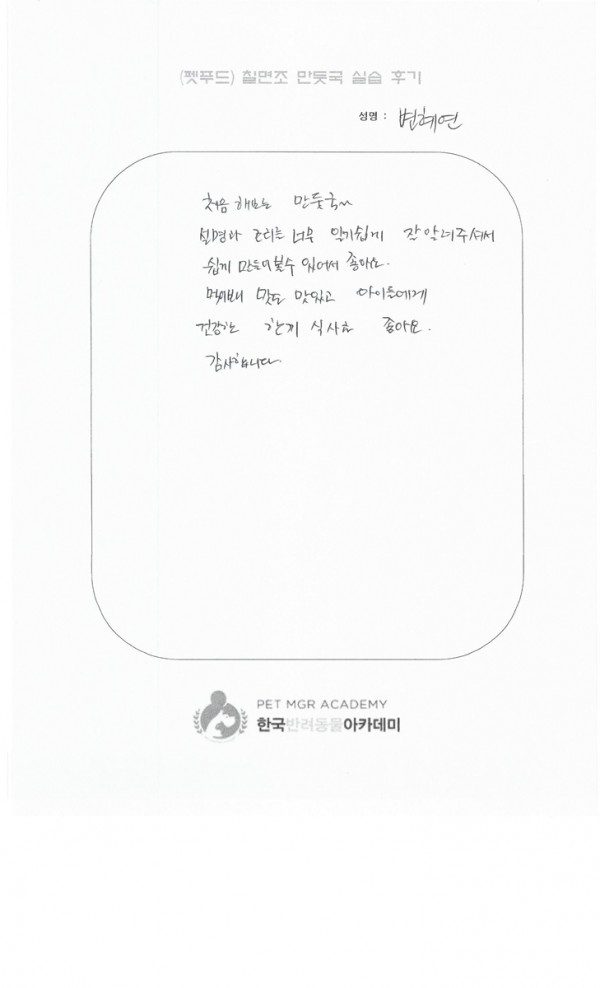 (펫푸드) 칠면조 만둣국 실습 후기
성명 : 변혜연
처음 해보는 만둣국~
설명과 요리를 너무 알기쉽게 잘 알려주셔서
쉽게 만들어볼수 있어서 좋아요.
먹어보니 맛도 맛있고 아이들에게
건강한 한끼 식사라 좋아요.
감사합니다
PET MGR ACADEMY
한국반려동물아카데미